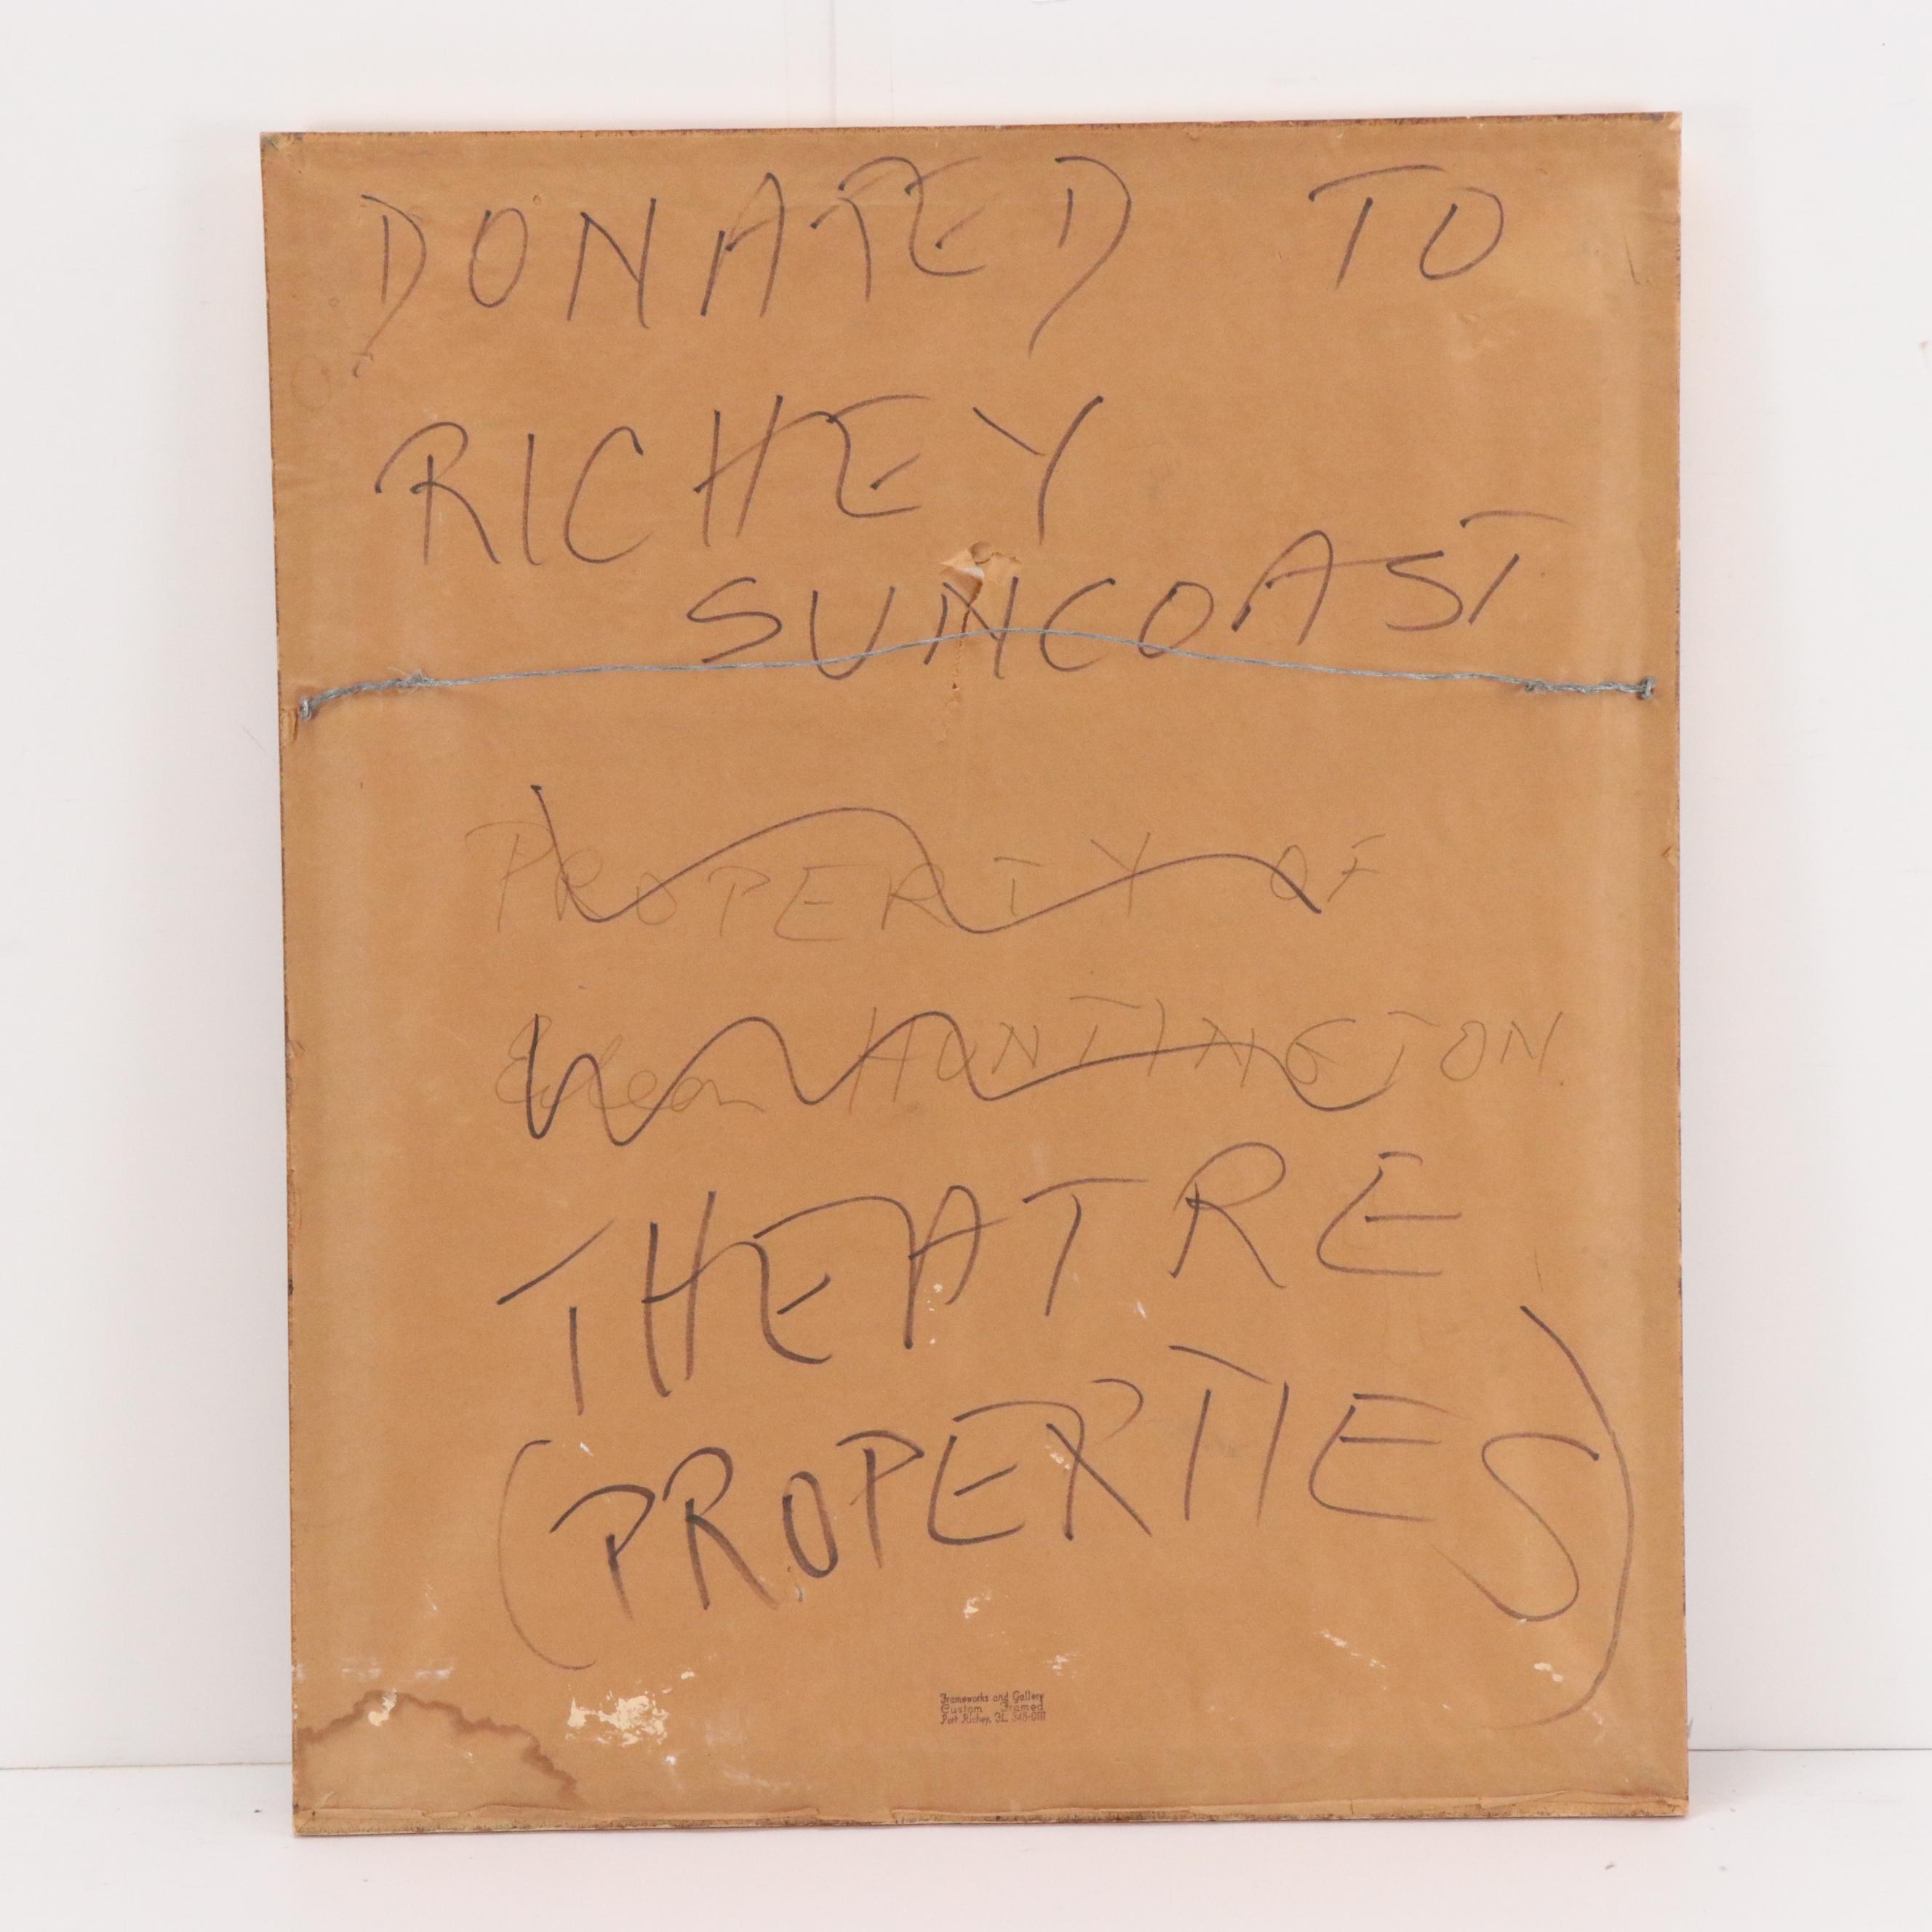 DONATED TO
RICHEY
SUNCOAST
PROPERTY OF
HUNTINGTON
THEATRE
(PROPERTIES)
Frameworks and Gallery
Custom Framed
Port Richey, FL